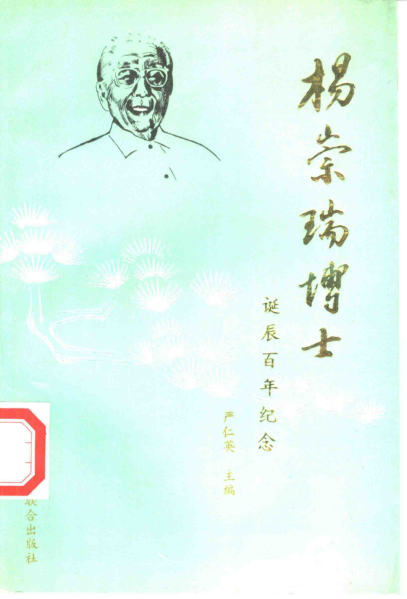 杨崇瑞博士
诞辰百年纪念
严仁英 主编
联合出版社